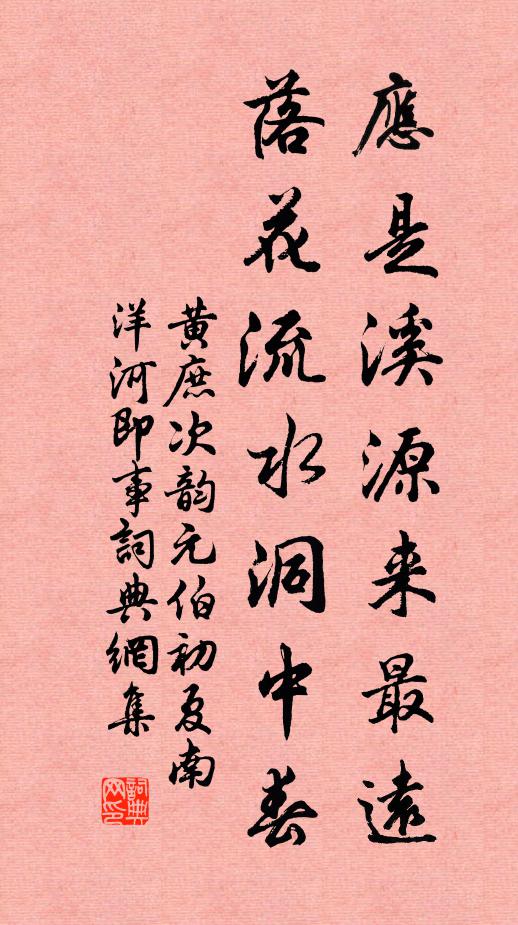 應是溪源来最遠
落花流水洞中春
黄庶次韵元伯初夏南
洋河即事詞典網集
詞典网印